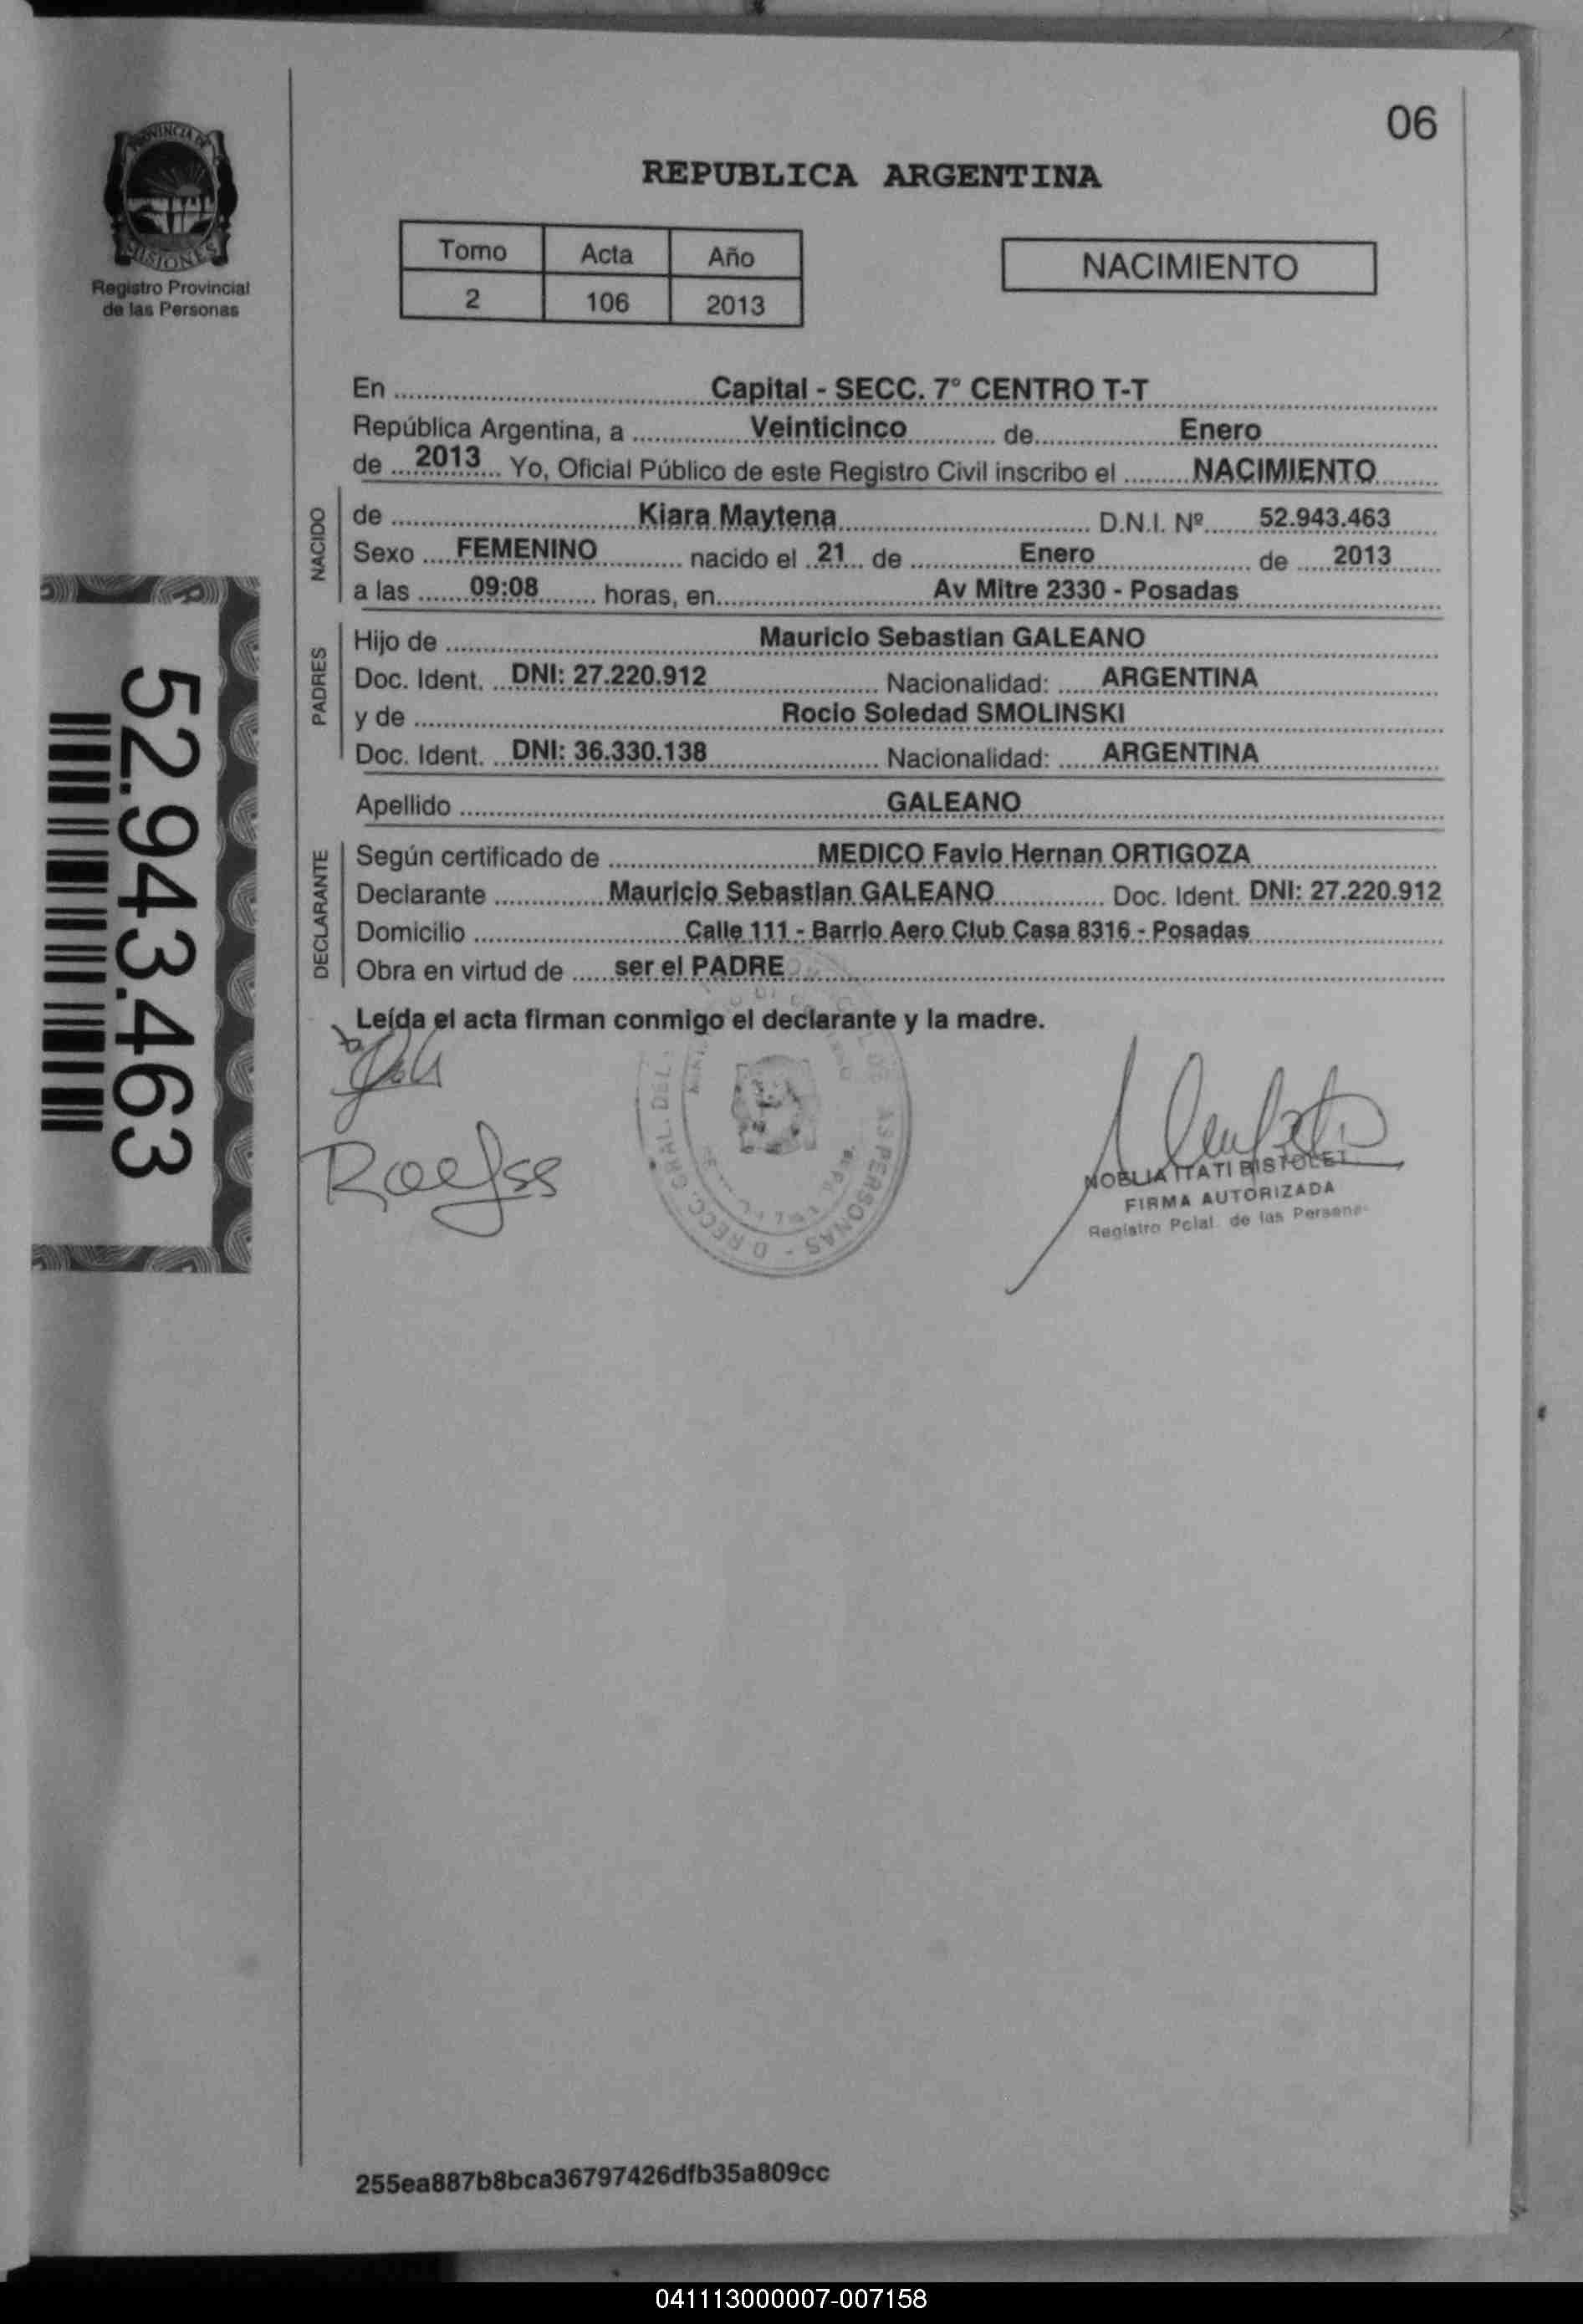 06
PROVINCIA DE
MISIONES
Registro Provincial
de las Personas
REPUBLICA ARGENTINA
Tomo Acta Año
2 106 2013
NACIMIENTO
En Capital - SECC. 7° CENTRO T-T
República Argentina, a Veinticinco de Enero
de 2013 Yo, Oficial Público de este Registro Civil inscribo el NACIMIENTO
NACIDO
de Kiara Maytena D.N.I. Nº 52.943.463
Sexo FEMENINO nacido el 21 de Enero de 2013
a las 09:08 horas, en Av Mitre 2330 - Posadas
PADRES
Hijo de Mauricio Sebastian GALEANO
Doc. Ident. DNI: 27.220.912 Nacionalidad: ARGENTINA
y de Rocio Soledad SMOLINSKI
Doc. Ident. DNI: 36.330.138 Nacionalidad: ARGENTINA
Apellido GALEANO
DECLARANTE
Según certificado de MEDICO Favio Hernan ORTIGOZA
Declarante Mauricio Sebastian GALEANO Doc. Ident. DNI: 27.220.912
Domicilio Calle 111 - Barrio Aero Club Casa 8316 - Posadas
Obra en virtud de ser el PADRE
Leída el acta firman conmigo el declarante y la madre.
52.943.463
NOELIA ITATI BISTOLET
FIRMA AUTORIZADA
Registro Pcial. de las Personas
255ea887b8bca36797426dfb35a809cc
041113000007-007158